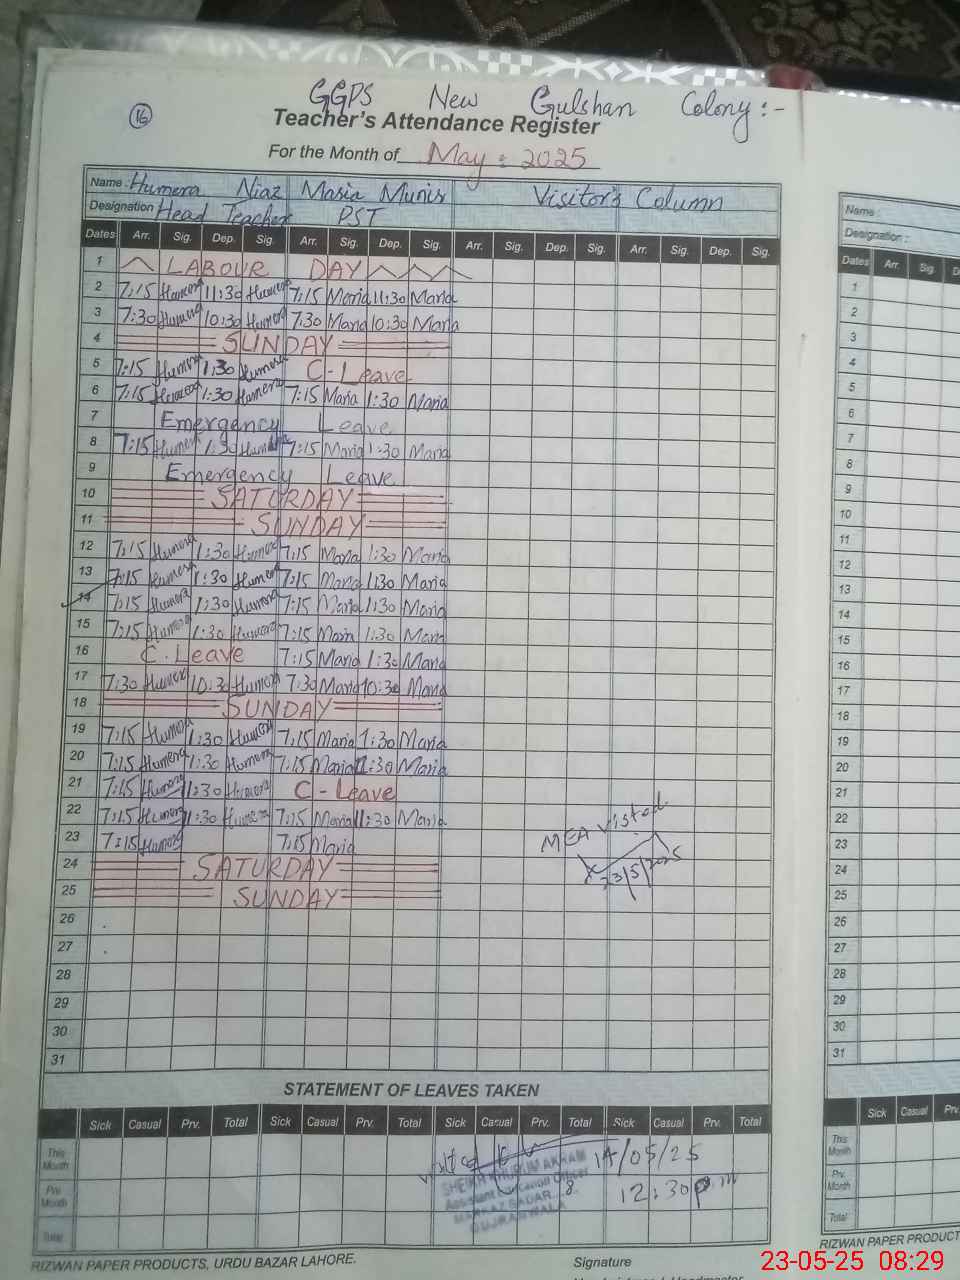 16
GGPS New Gulshan Colony:-
Teacher's Attendance Register
For the Month of May: 2025
Name: Humera Niaz Maria Munir Visitor's Column
Designation Head Teacher PST
Dates Arr. Sig. Dep. Sig. Arr. Sig. Dep. Sig. Arr. Sig. Dep. Sig. Arr. Sig. Dep. Sig.
1 LABOUR DAY
2 7:15 Humera 11:30 Humera 7:15 Maria 11:30 Maria
3 7:30 Humera 10:30 Humera 7:30 Maria 10:30 Maria
4 SUNDAY
5 7:15 Humera 1:30 Humera C-Leave
6 7:15 Humera 1:30 Humera 7:15 Maria 1:30 Maria
7 Emergency Leave
8 7:15 Humera 1:30 Humera 7:15 Maria 1:30 Maria
9 Emergency Leave
10 SATURDAY
11 SUNDAY
12 7:15 Humera 1:30 Humera 7:15 Maria 1:30 Maria
13 7:15 Humera 1:30 Humera 7:15 Maria 1:30 Maria
14 7:15 Humera 1:30 Humera 7:15 Maria 1:30 Maria
15 7:15 Humera 1:30 Humera 7:15 Maria 1:30 Maria
16 C.Leave 7:15 Maria 1:30 Maria
17 7:30 Humera 10:30 Humera 7:30 Maria 10:30 Maria
18 SUNDAY
19 7:15 Humera 1:30 Humera 7:15 Maria 1:30 Maria
20 7:15 Humera 1:30 Humera 7:15 Maria 11:30 Maria
21 7:15 Humera 11:30 Humera C-Leave
22 7:15 Humera 11:30 Humera 7:15 Maria 11:30 Maria
MEA visted
23 7:15 Humera 7:15 Maria
23/5/2025
24 SATURDAY
25 SUNDAY
26
27
28
29
30
31
STATEMENT OF LEAVES TAKEN
Sick Casual Prv. Total Sick Casual Prv. Total Sick Casual Prv. Total Sick Casual Prv. Total
This Month
14/05/25
SHEIKH KHURUM AKRAM
Assistant Education Officer
Prv. Month
12:30pm
MARKAZ SADAR
GUJRANWALA
Total
RIZWAN PAPER PRODUCTS, URDU BAZAR LAHORE.
Signature
Name :
Designation :
Dates Arr. Sig.
1
2
3
4
5
6
7
8
9
10
11
12
13
14
15
16
17
18
19
20
21
22
23
24
25
26
27
28
29
30
31
Sick Casual Prv.
This Month
Prv. Month
Total
RIZWAN PAPER PRODUCT
23-05-25 08:29